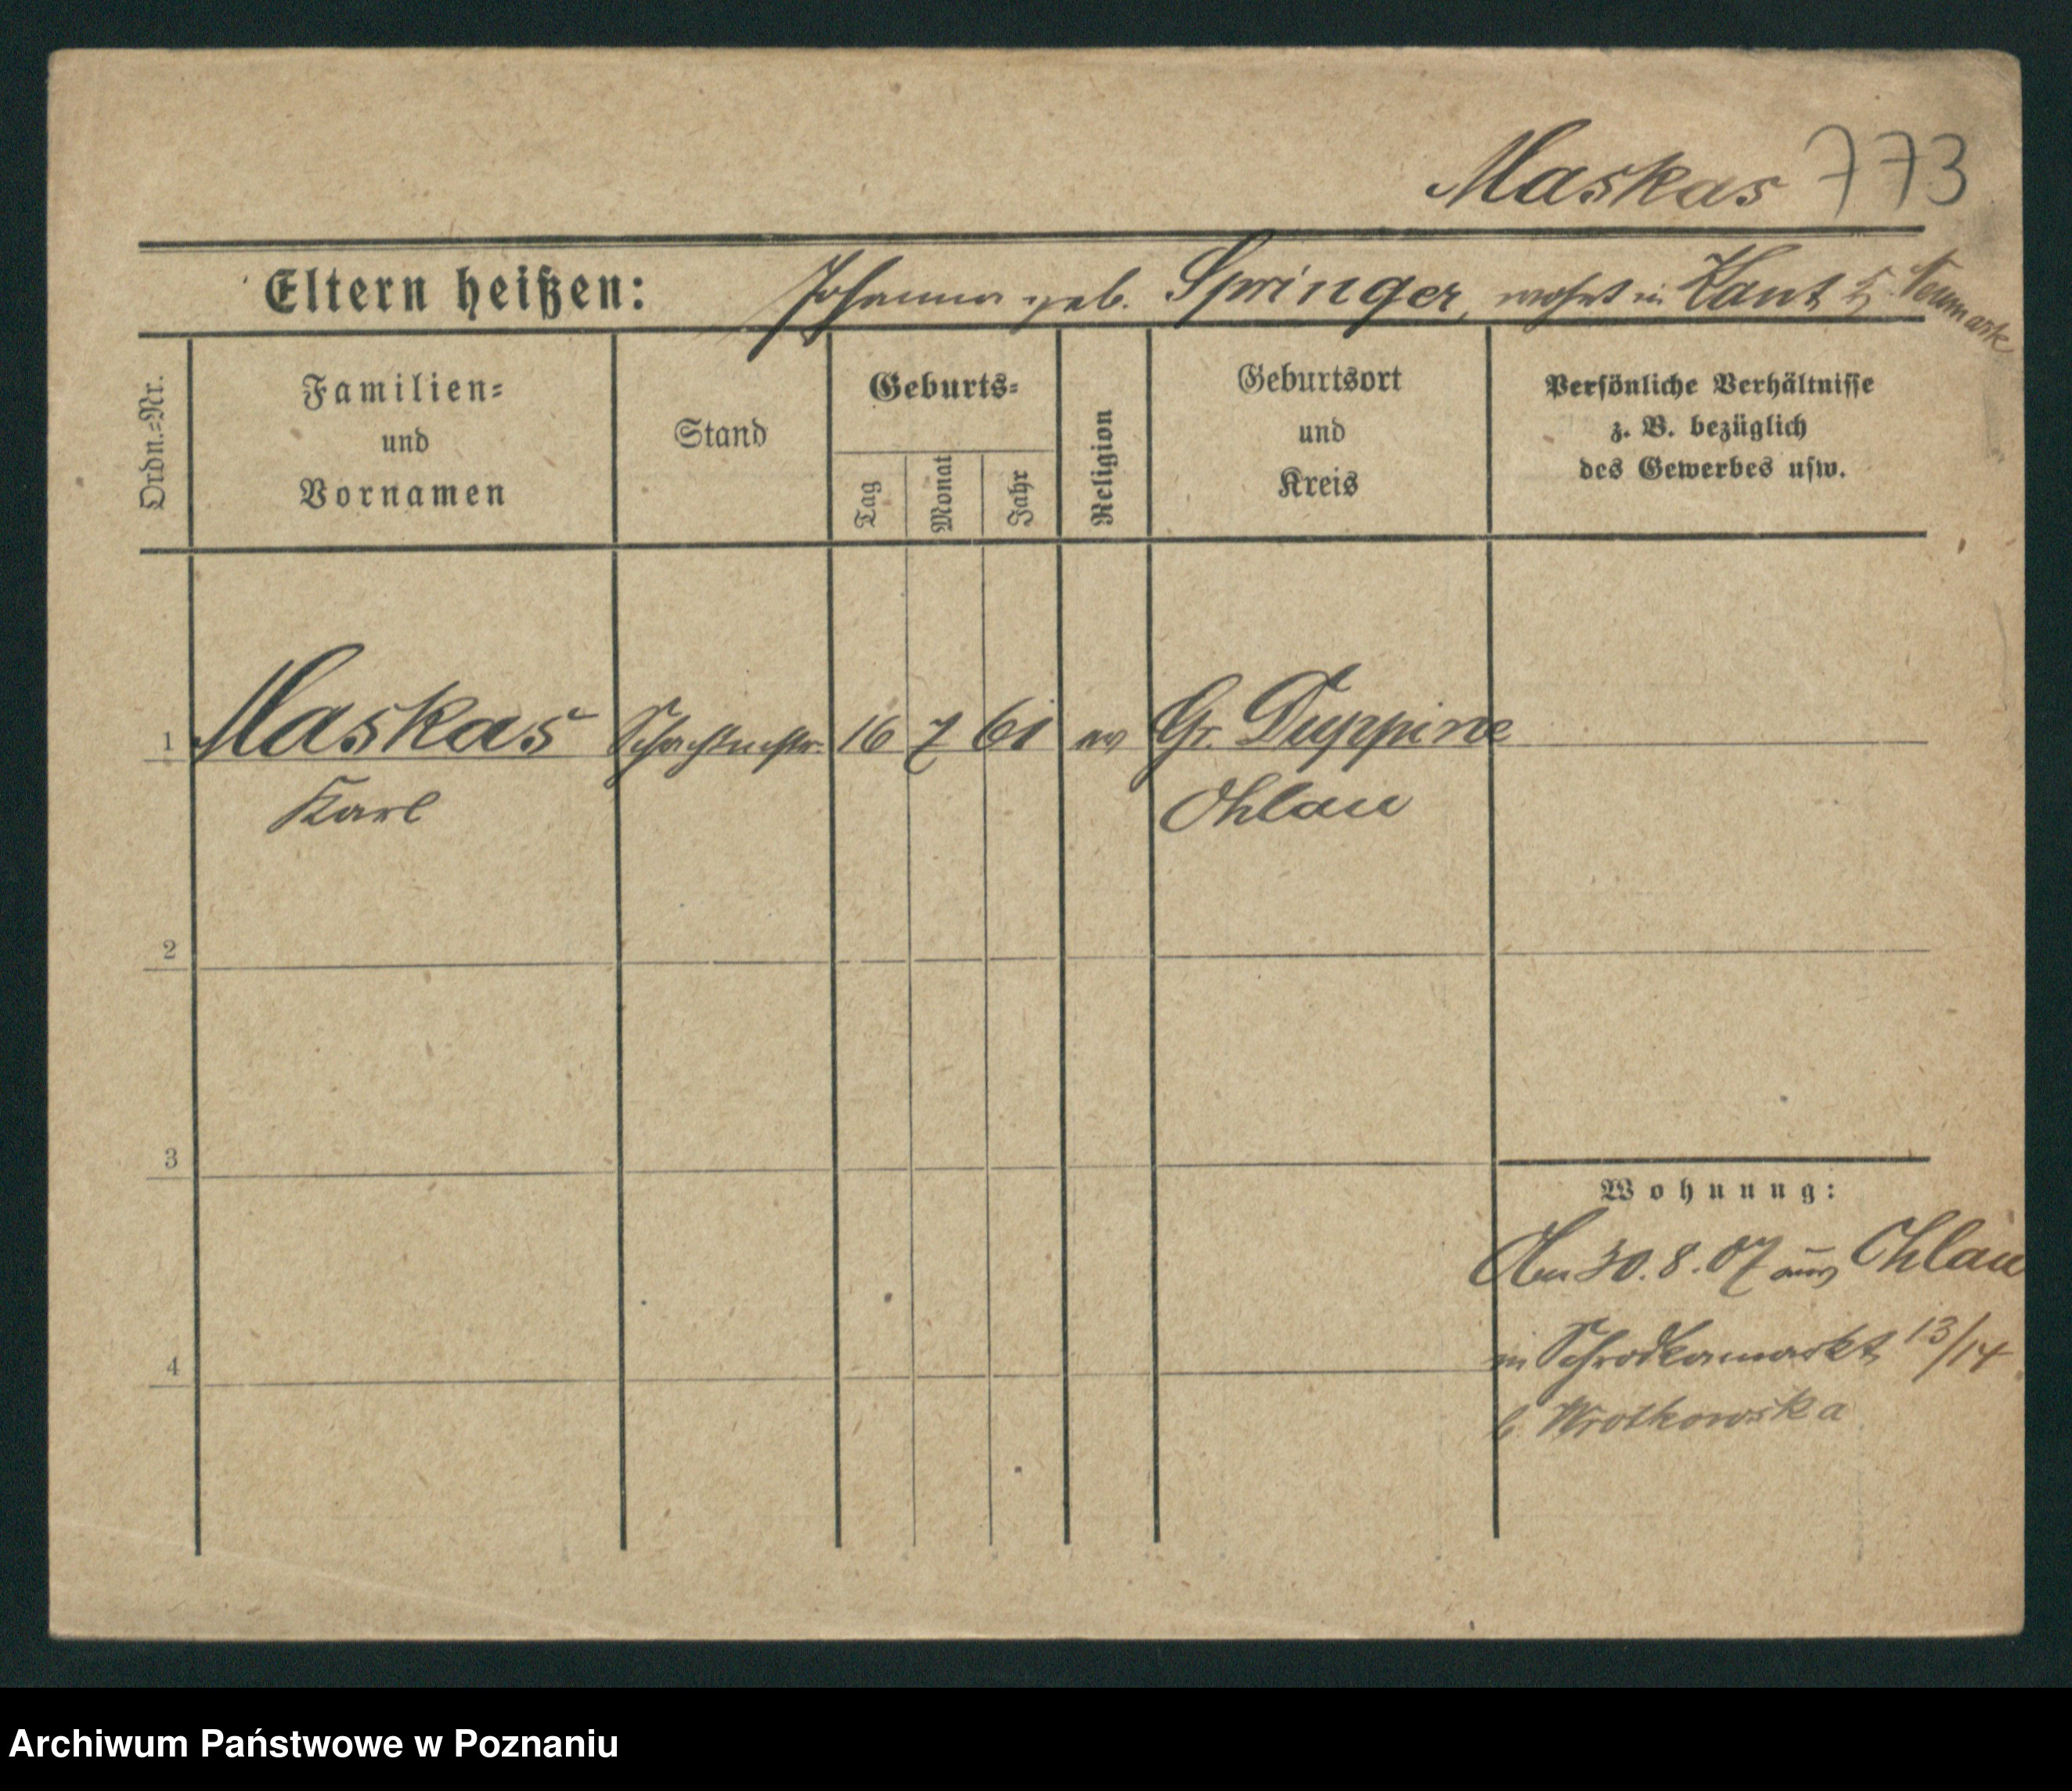 Maskas 773
Eltern heißen: Johanna geb. Springer, wohnt in Kant Neumarkt
Ordn.=Nr.
Familien=
und
Vornamen
Stand
Geburts=
Tag
Monat
Jahr
Religion
Geburtsort
und
Kreis
Persönliche Verhältnisse
z. B. bezüglich
des Gewerbes usw.
1 Maskas Schachtmstr. 16 7 61 ev Gr. Duppine
Karl Ohlau
2
3
Wohnung:
Am 30. 8. 07 aus Ohlau
in Schrodkamarkt 13/14
4
b Wrotkowska
Archiwum Państwowe w Poznaniu